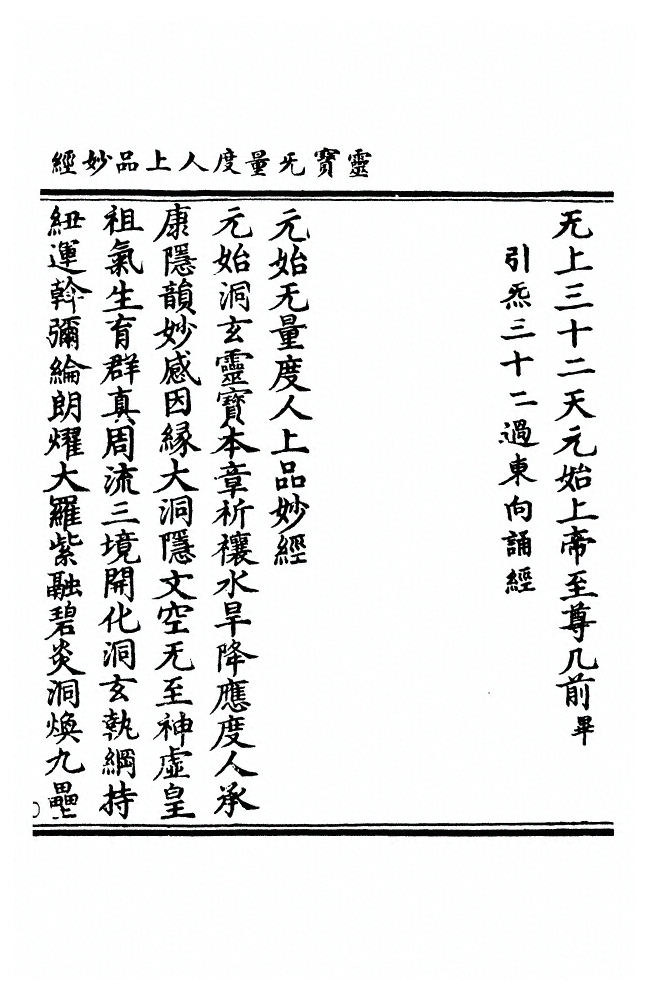 靈寶无量度人上品妙經
无上三十二天元始上帝至尊几前畢
引炁三十二過東向誦經
元始无量度人上品妙經
元始洞玄靈寶本章祈禳水旱降應度人承
康隱韻妙感因緣大洞隱文空无至神虛皇
祖氣生育群真周流三境開化洞玄執綱持
紐運斡彌綸朗燿大羅紫融碧炎洞煥九壘